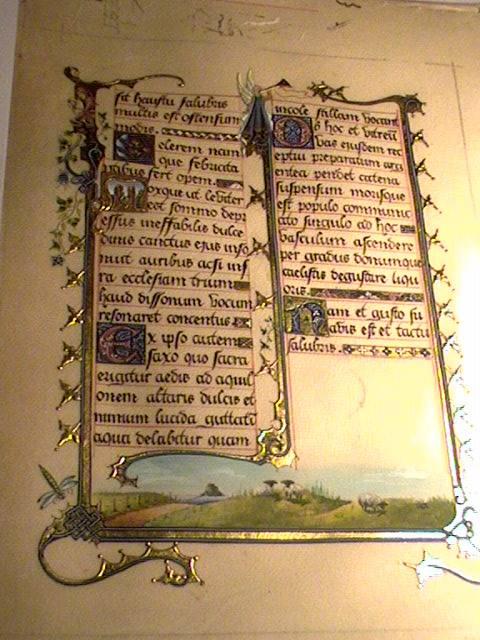 sit haustu salubris
multis est ostensum
modis.
Celerem nam
que febricita
ntibus fert opem.
Moxque ut leviter
est sommo depr
essus ineffabilis dulce
dinis canctus ejus inso
nuit auribus acsi inf
ra ecclesiam trium
haud dissonum vocum
resonaret concentus
Ex ipso autem
saxo quo sacra
erigitur aedis ad aquil
onem altaris dulcis et
nimium lucida guttati
aqua delabitur quam
incole stillam vocant
Ob hoc et vitreu
vas ejusdem rec
eptui preparatum arg
entea pendet catena
suspensum morisque
est populo communic
ato singulo ad hoc
vasculum ascendere
per gradus donumque
caelistis degustare liqu
oris
Nam et gusto su
avis est et tactu
salubris.